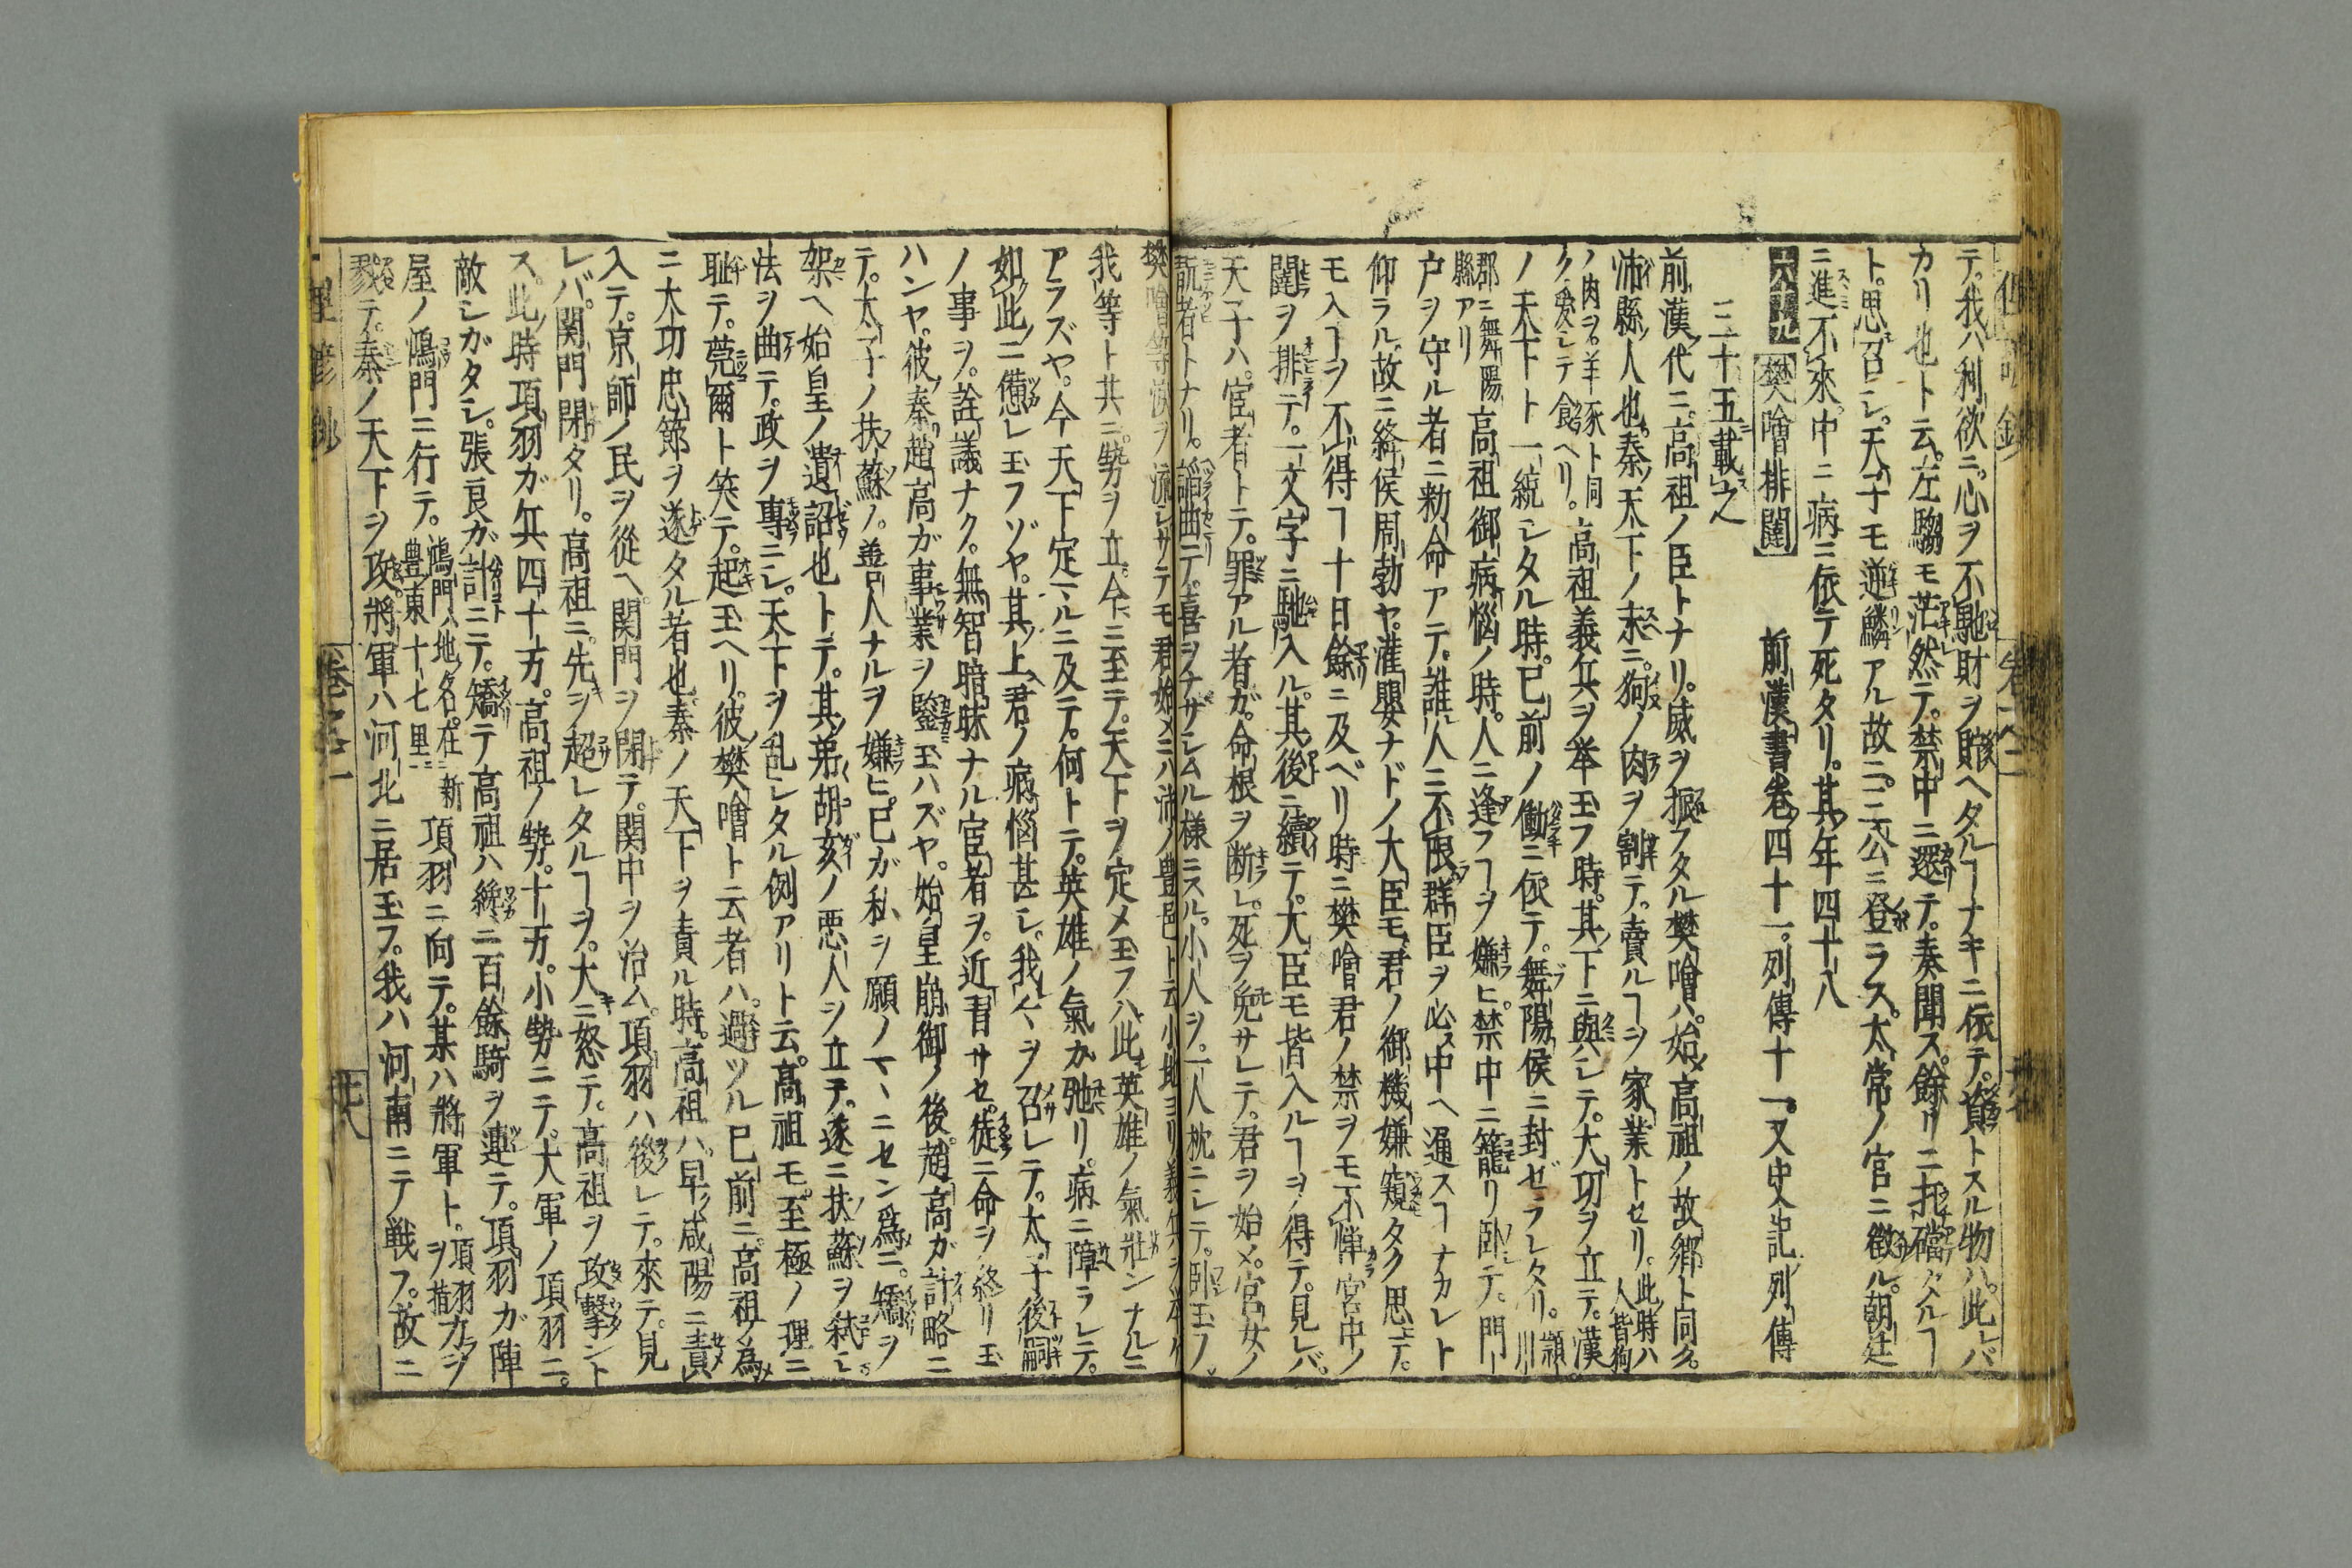 テ。我ハ利欲ニ。心ヲ不馳財ヲ貯ヘタルヿナキニ依テ。資トスル物ハ。此レバ
カリ也ト云。左騶モ茫然テ。禁中ニ還テ。奏聞ス。餘リニ托礑タルヿ
ト。思召シ。天子モ逆鱗アル故ニ。三公ニ登ラス。太常ノ官ニ徴ル。朝廷
ニ進不來。中ニ病ニ依テ死タリ。其年四十八
樊噲排闥 前漢書卷四十一。列傳十一。又史記列傳
三十五載之
前漢代ニ。高祖ノ臣トナリ。威ヲ振フタル樊噲ハ。始メ高祖ノ故郷ト同ク。
沛縣人也。秦天下ノ末ニ。狗ノ肉ヲ割テ。賣ルヿヲ家業トセリ。此時ハ人皆狗
ノ肉ヲ。羊豕ト同ク愛シテ食ヘリ。高祖義兵ヲ挙玉フ時。其下ニ與シテ。大功ヲ立テ。漢
ノ天下ト一統シタル時。已前ノ働ニ依テ。舞陽侯ニ封ゼラレタリ。頴川
郡ニ舞陽縣アリ高祖御病惱ノ時。人ニ逢フヿヲ嫌ヒ。禁中ニ籠リ卧テ。門
户ヲ守ル者ニ勅命アテ。誰人ニ不限群臣ヲ必ス中ヘ通スヿナカレト
仰ラル。故ニ絳侯周勃ヤ。灌嬰ナドノ大臣モ。君ノ御機嫌窺タク思テ。
モ入ヿヲ不得ヿ十日餘ニ及ベリ時ニ樊噲君ノ禁ヲモ不憚宮中ノ
闥ヲ排テ。一文字ニ馳入ル。其後ニ續テ。大臣モ皆入ルヿヲ得テ。見レバ。
天子ハ。宦者トテ。罪アル者ガ。命根ヲ断レ。死ヲ免サレテ。君ヲ始メ。宮女ノ
翫者トナリ。謟曲テ。喜ヲナサシムル様ニスル。小人ヲ。一人枕ニシテ。卧玉フ。
樊噲等涙ヲ流シサテモ君始メニハ沛ノ豊邑ト云小地ヨリ義兵ヲ
我等ト共ニ。勢ヲ立。今ニ至テ。天下ヲ定メ玉フハ此英雄ノ氣壯ンナルニ
アラズヤ。今天下定マルニ及テ。何トテ。英雄ノ氣カ弛リ。病ニ障ラレテ。
如此ニ憊レ玉フゾヤ。其上君ノ病惱甚シ。我々ヲ召レテ。太子後嗣
ノ事ヲ。詮議ナク。無智暗昧ナル宦者ヲ。近習サセ。徒ニ命ヲ終リ玉
ハンヤ。彼秦趙高ガ事業ヲ鑒玉ハズヤ。始皇崩御ノ後。趙高ガ計略ニ
テ。太子ノ扶蘇ノ。善人ナルヲ嫌ヒ。已ガ私ヲ願ノマヽニセン爲ニ。矯ヲ
架ヘ始皇ノ遺詔也トテ。其弟胡亥ノ悪人ヲ立テ。遂ニ扶蘇ヲ弑シ
法ヲ曲テ。政ヲ專ニシ。天下ヲ乱レタル例アリト云。高祖モ。至極ノ理ニ
耻テ。莞爾ト笑テ。起玉ヘリ。彼樊噲ト云者ハ。過ツル已前ニ。高祖ノ爲
ニ大功忠節ヲ遂タル者也。秦ノ天下ヲ責ル時。高祖ハ。早咸陽ニ責
入テ。京師ノ民ヲ從ヘ。関門ヲ閉テ。関中ヲ治ム。項羽ハ後レテ。來テ。見
レバ。関門閉タリ。高祖ニ。先ヲ超レタルヿヲ。大ニ怒テ。高祖ヲ攻撃ント
ス。此時項羽ガ兵四十万。高祖ノ勢。十万。小勢ニテ。大軍ノ項羽ニ。
敵シガタシ。張良ガ計ニテ。矯テ高祖ハ纔ニ百餘騎ヲ連テ。項羽ガ陣
屋ノ鴻門ニ行テ。鴻門ハ地名。在新豊東十七里ニ項羽ニ向テ。某ハ將軍ト。項羽カヲヲ
戮テ。秦ノ天下ヲ攻。將軍ハ河北ニ居玉フ。我ハ河南ニテ戦フ。故ニ